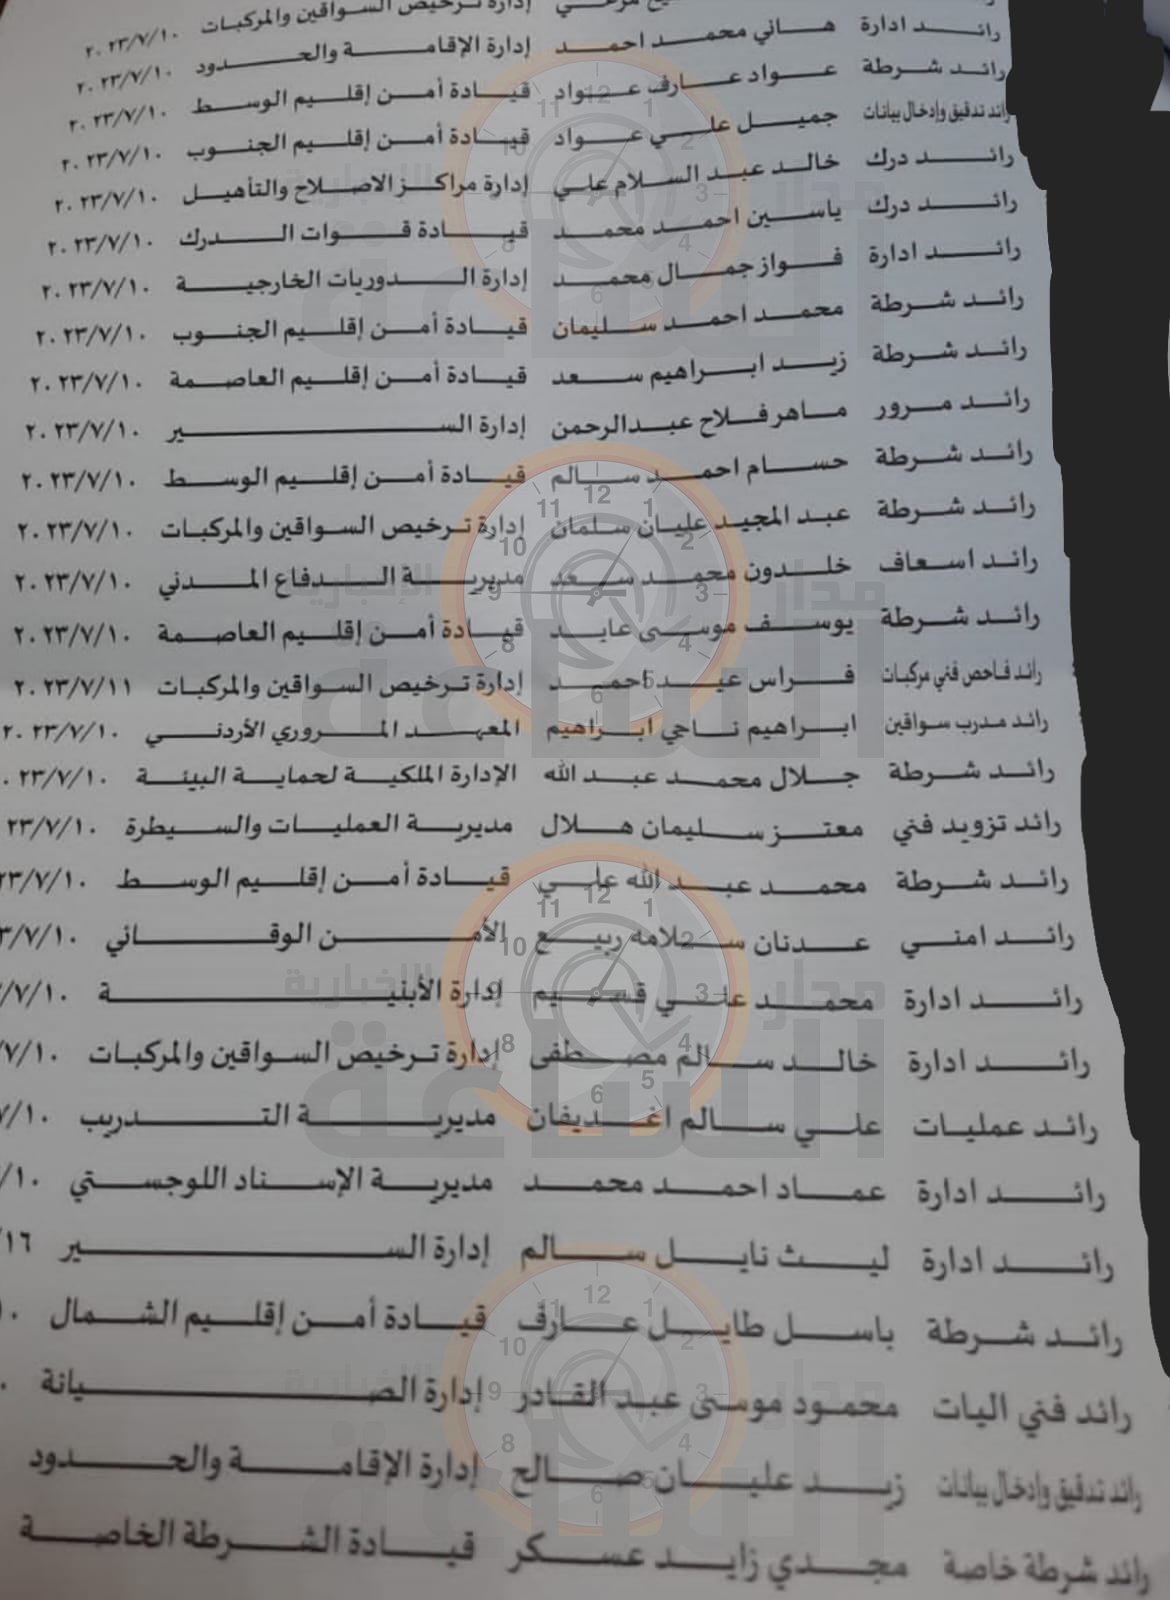 إدارة ترخيص السواقين والمركبات ٢٠٢٣/٧/١٠
رائد ادارة هاني محمد احمد إدارة الإقامة والحدود ٢٠٢٣/٧/١٠
رائد شرطة عواد عارف عواد قيادة أمن إقليم الوسط ٢٠٢٣/٧/١٠
رائد تدقيق وإدخال بيانات جميل علي عواد قيادة أمن إقليم الجنوب ٢٠٢٣/٧/١٠
رائد درك خالد عبد السلام علي إدارة مراكز الاصلاح والتأهيل ٢٠٢٣/٧/١٠
رائد درك ياسين احمد محمد قيادة قوات الدرك ٢٠٢٣/٧/١٠
رائد ادارة فواز جمال محمد إدارة الدوريات الخارجية ٢٠٢٣/٧/١٠
رائد شرطة محمد احمد سليمان قيادة أمن إقليم الجنوب ٢٠٢٣/٧/١٠
رائد شرطة زيد ابراهيم سعد قيادة أمن إقليم العاصمة ٢٠٢٣/٧/١٠
رائد مرور ماهر فلاح عبدالرحمن إدارة السير ٢٠٢٣/٧/١٠
رائد شرطة حسام احمد سالم قيادة أمن إقليم الوسط ٢٠٢٣/٧/١٠
رائد شرطة عبد المجيد عليان سلمان إدارة ترخيص السواقين والمركبات ٢٠٢٣/٧/١٠
رائد اسعاف خلدون محمد سعد مديرية الدفاع المدني ٢٠٢٣/٧/١٠
رائد شرطة يوسف موسى عايد قيادة أمن إقليم العاصمة ٢٠٢٣/٧/١٠
رائد فاحص فني مركبات فراس عيد احمد إدارة ترخيص السواقين والمركبات ٢٠٢٣/٧/١١
رائد مدرب سواقين ابراهيم ناجي ابراهيم المعهد المروري الأردني ٢٠٢٣/٧/١٠
رائد شرطة جلال محمد عبد الله الإدارة الملكية لحماية البيئة ٠٢٣/٧/١٠
رائد تزويد فني معتز سليمان هلال مديرية العمليات والسيطرة ٢٣/٧/١٠
رائد شرطة محمد عبد الله علي قيادة أمن إقليم الوسط ٢٣/٧/١٠
رائد امني عدنان سلامه ربيع الأمن الوقائي ٣/٧/١٠
رائد ادارة محمد علي قسيم إدارة الأبنية /٧/١٠
رائد ادارة خالد سالم مصطفى إدارة ترخيص السواقين والمركبات ٧/١٠
رائد عمليات علي سالم اغديفان مديرية التدريب ٧/١٠
رائد ادارة عماد احمد محمد مديرية الإسناد اللوجستي /١٠
رائد ادارة ليث نايل سالم إدارة السير /١٦
رائد شرطة باسل طايل عارف قيادة أمن إقليم الشمال ١٠
رائد فني اليات محمود موسى عبد القادر إدارة الصيانة ٠
رائد تدقيق وإدخال بيانات زيد عليان صالح إدارة الإقامة والحدود
رائد شرطة خاصة مجدي زايد عسكر قيادة الشرطة الخاصة